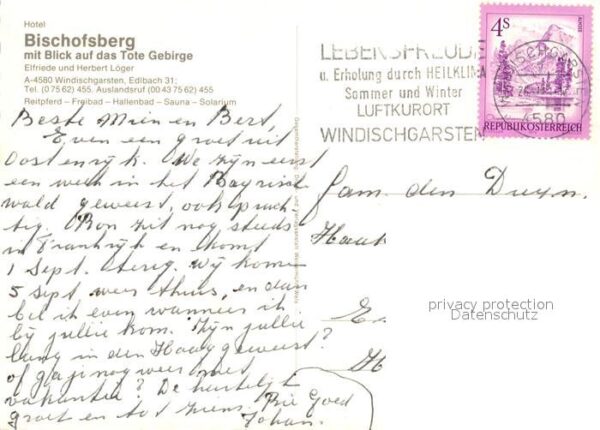 Hotel
Bischofsberg
mit Blick auf das Tote Gebirge
Elfriede und Herbert Löger
A-4580 Windischgarsten, Edlbach 31;
Tel. (0 75 62) 455. Auslandsruf (00 43 75 62) 455
Reitpferd – Freibad – Hallenbad – Sauna – Solarium
Beste Mien en Bert,
Even een groet uit
Oostenryk. We zyn eerst
een week in het Bayrisch
wald geweest, ook prach-
tig. Ron zit nog steeds
in Frankryk en komt
1 Sept. terug. Wy komen
5 sept weer thuis, en dan
bel ik even wanneer ik
by jullie kom. Zyn jullie
lang in den Haag geweest?
of ga je nog weer met
vakantie? De hartelyk
groet en tot ziens. Rie Goed
Johan.
LEBENSFREUDE
u. Erholung durch HEILKLIMA
Sommer und Winter
LUFTKURORT
WINDISCHGARSTEN
4S
REPUBLIK ÖSTERREICH
WINDISCHGARSTEN
4580
Fam. den Duyn.
privacy protection
Datenschutz